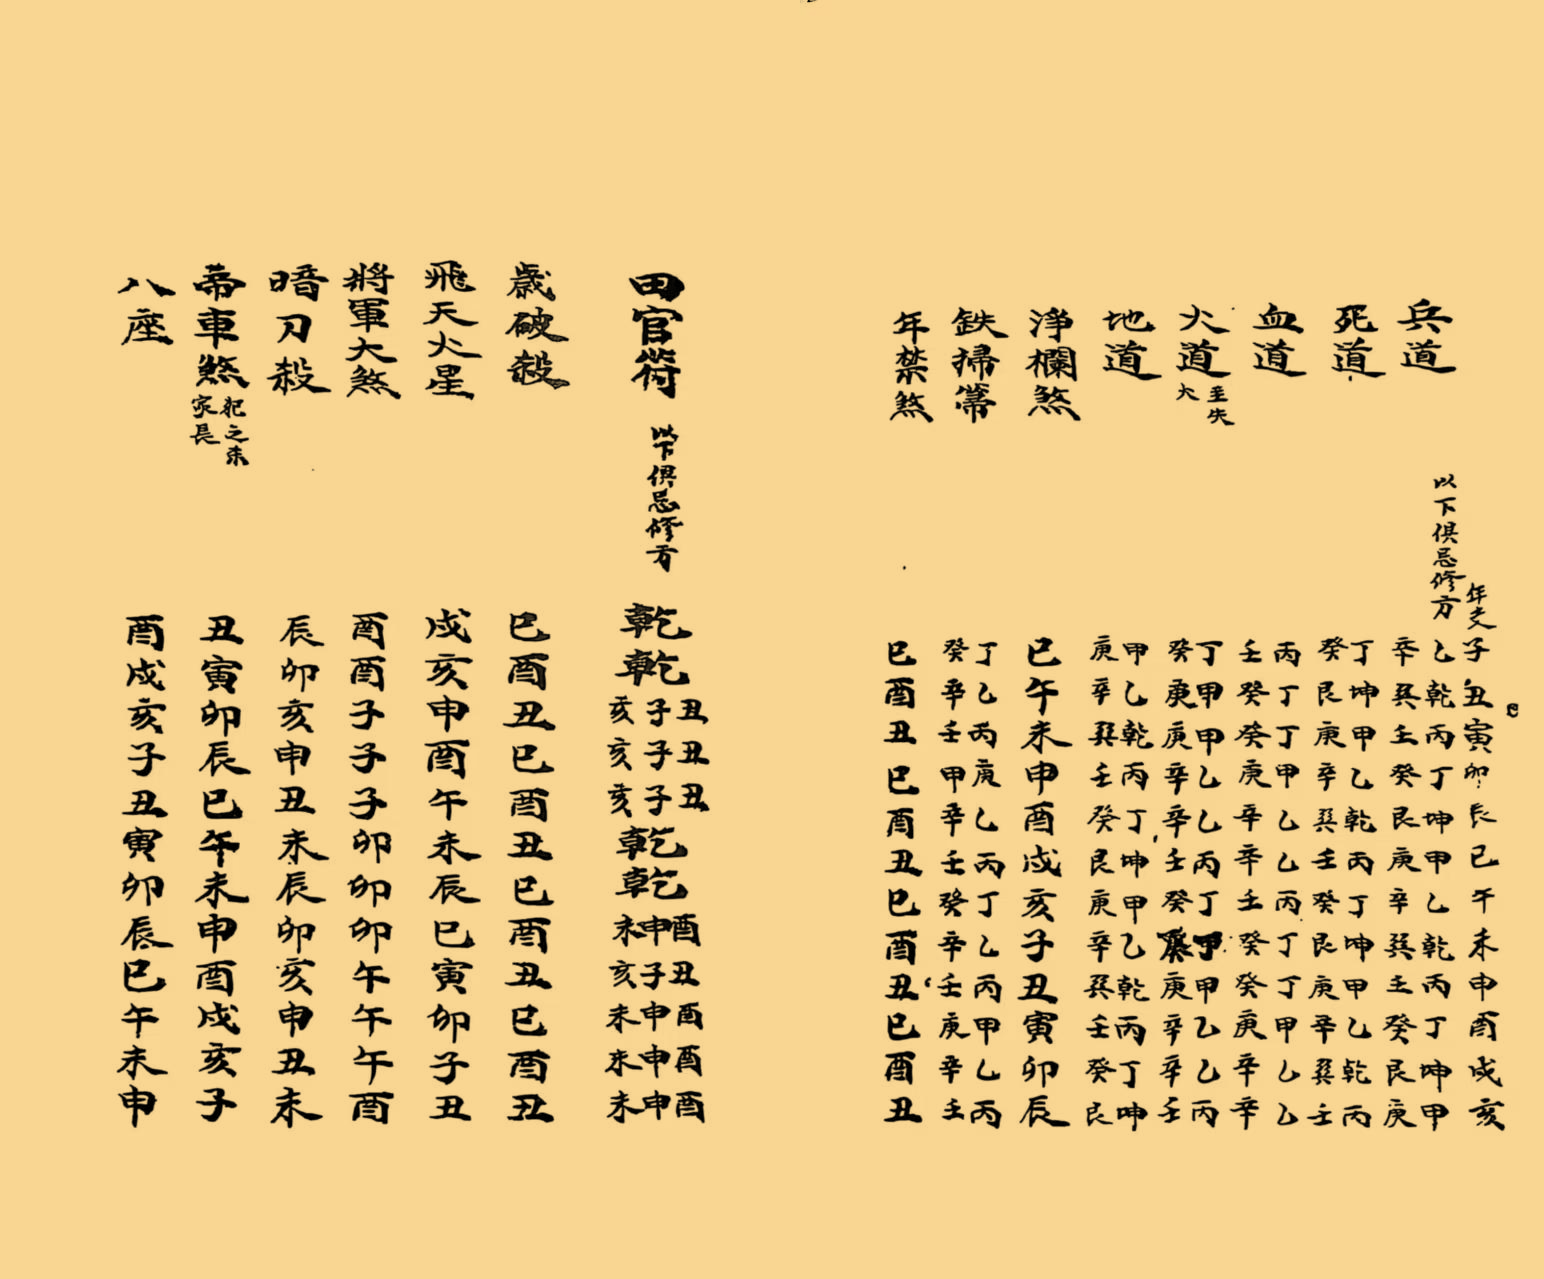 年支子丑寅卯辰巳午未申酉戌亥
兵道 以下俱忌修方
乙乾丙丁坤甲乙乾丙丁坤甲
辛巽壬癸艮庚辛巽壬癸艮庚
死道
丁坤甲乙乾丙丁坤甲乙乾丙
癸艮庚辛巽壬癸艮庚辛巽壬
血道
丙丁丁甲乙乙丙丁丁甲乙乙
壬癸癸庚辛辛壬癸癸庚辛辛
火道 至失火
丁甲甲乙乙丙丁甲甲乙乙丙
癸庚庚辛辛壬癸庚辛辛壬
地道
甲乙乾丙丁坤甲乙乾丙丁坤
庚辛巽壬癸艮庚辛巽壬癸艮
淨欄煞 巳午未申酉戌亥子丑寅卯辰
鉄掃箒
丁乙丙庚乙丙丁乙丙甲乙丙
癸辛壬甲辛壬癸辛壬庚辛壬
年禁煞 巳酉丑巳酉丑巳酉丑巳酉丑
田官符 以下俱忌修方 乾乾丑子亥丑子亥丑子亥乾乾酉申未丑子亥酉申未酉申未酉申未
歲破殺 巳酉丑巳酉丑巳酉丑巳酉丑
飛天火星 戌亥申酉午未辰巳寅卯子丑
將軍大煞 酉酉子子子卯卯卯午午午酉
暗刀殺 辰卯亥申丑未辰卯亥申丑未
帝車煞 犯之未家長 丑寅卯辰巳午未申酉戌亥子
八座 酉戌亥子丑寅卯辰巳午未申